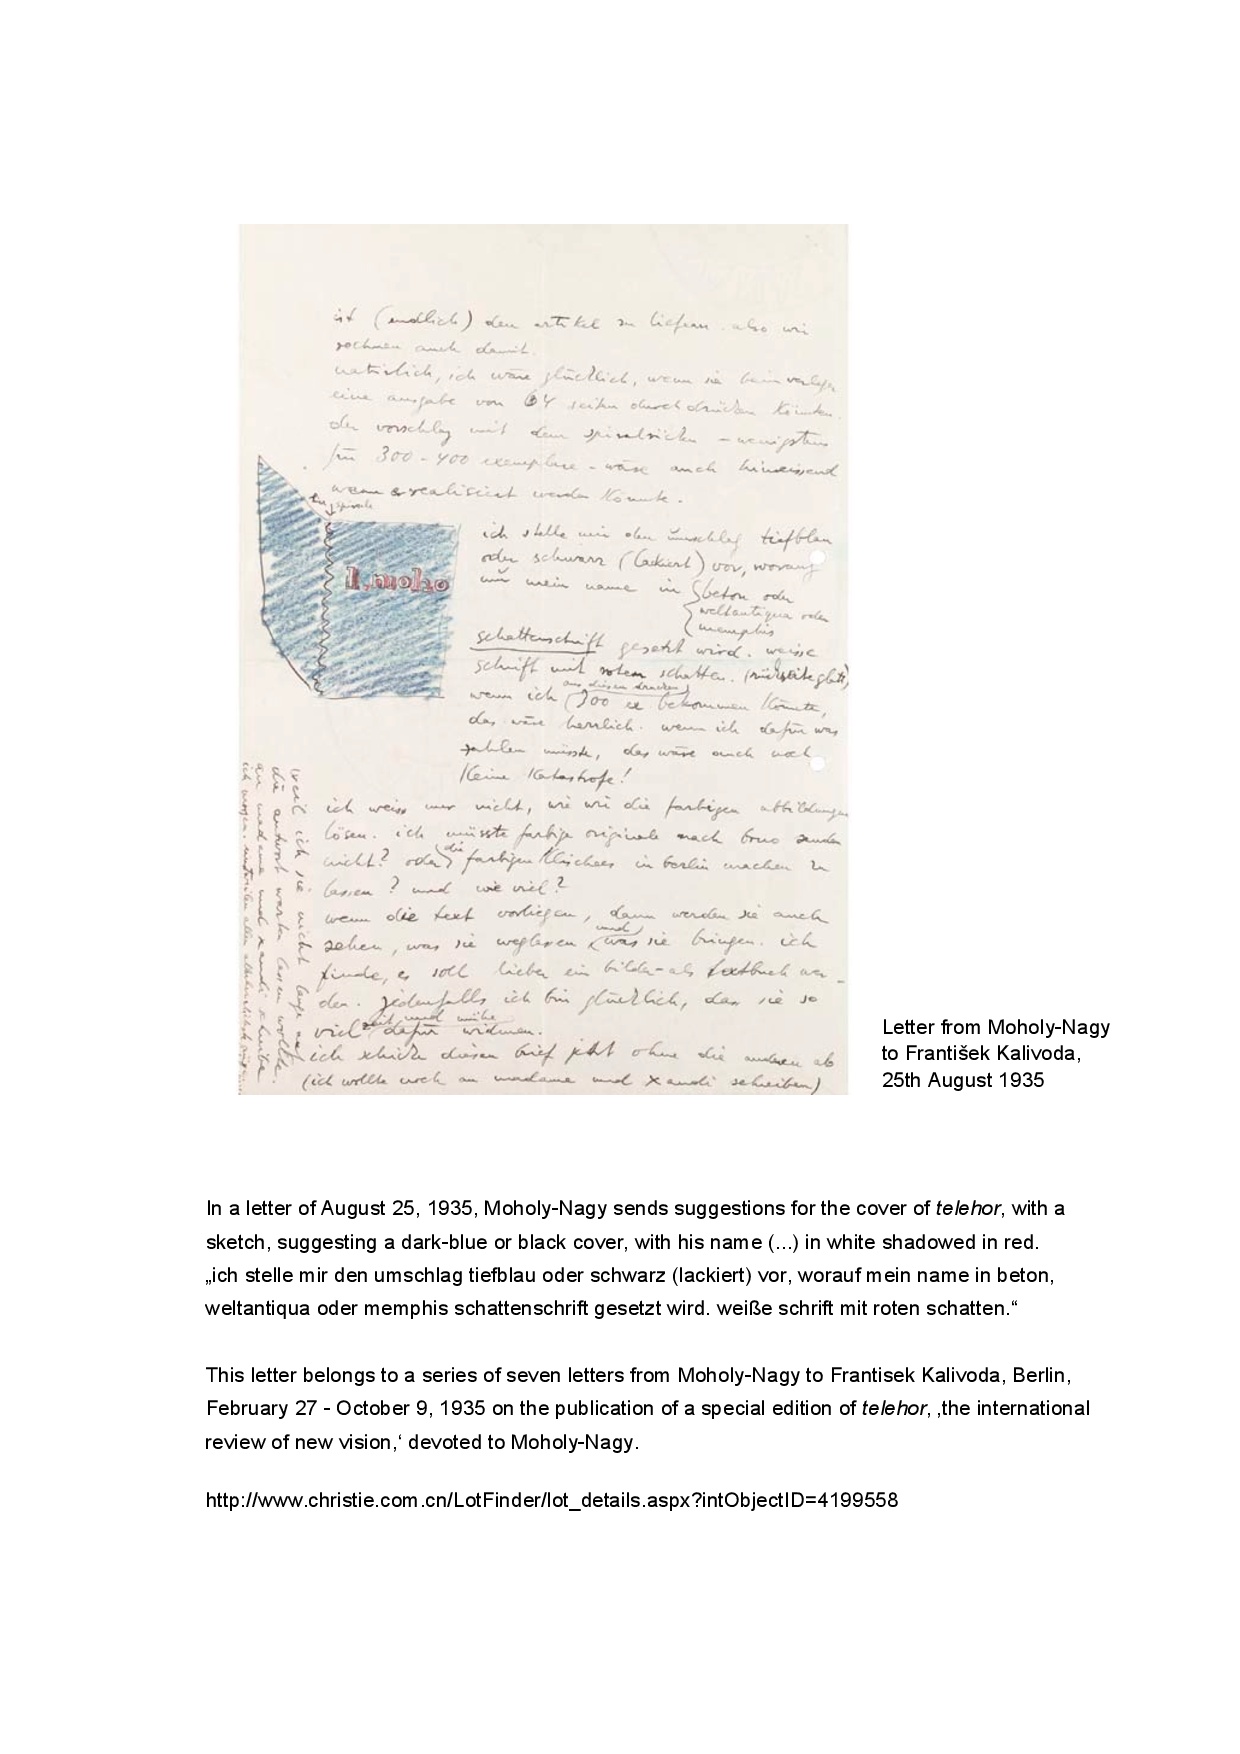 ist (endlich) den artikel zu liefern. also wir
rechnen auch damit.
natürlich, ich wäre glücklich, wenn sie beim verleger
eine ausgabe von 64 seiten durchdrücken könnten.
der vorschlag mit dem spiralrücken – wenigstens
für 300-400 exemplare – wäre auch hinreissend
wenn er realisiert werden könnte.
spirale
l. moho
ich stelle mir den umschlag tiefblau
oder schwarz (lackiert) vor, worauf
nur mein name in beton oder
weltantiqua oder
memphis
schattenschrift gesetzt wird. weisse
schrift mit rotem schatten. (rückseite glatt)
aus diesen drucken
wenn ich 300 ex bekommen könnte,
das wäre herrlich. wenn ich dafür was
zahlen müsste, das wäre auch noch
keine katastrofe!
ich weiss nur nicht, wie wir die farbigen abbildungen
lösen. ich müsste farbige originale nach brno senden
nicht? oder die farbigen klischees in berlin machen zu
lassen? und wie viel?
wenn die text vorliegen, dann werden sie auch
sehen, was sie weglassen und was sie bringen. ich
finde, es soll lieber ein bilder- als textbuch wer-
den. jedenfalls ich bin glücklich, das sie so
viel zeit und mühe dafür widmen.
ich schicke diesen brief jetzt ohne die anderen ab
(ich wollte noch an madame und xandi schreiben)
weil ich sie nicht lange auf
die antwort warten lassen wollte.
an madame und xandi schreibe
ich morgen.
Letter from Moholy-Nagy
to František Kalivoda,
25th August 1935
In a letter of August 25, 1935, Moholy-Nagy sends suggestions for the cover of telehor, with a
sketch, suggesting a dark-blue or black cover, with his name (...) in white shadowed in red.
„ich stelle mir den umschlag tiefblau oder schwarz (lackiert) vor, worauf mein name in beton,
weltantiqua oder memphis schattenschrift gesetzt wird. weiße schrift mit roten schatten.“
This letter belongs to a series of seven letters from Moholy-Nagy to Frantisek Kalivoda, Berlin,
February 27 - October 9, 1935 on the publication of a special edition of telehor, ‚the international
review of new vision,‘ devoted to Moholy-Nagy.
http://www.christie.com.cn/LotFinder/lot_details.aspx?intObjectID=4199558